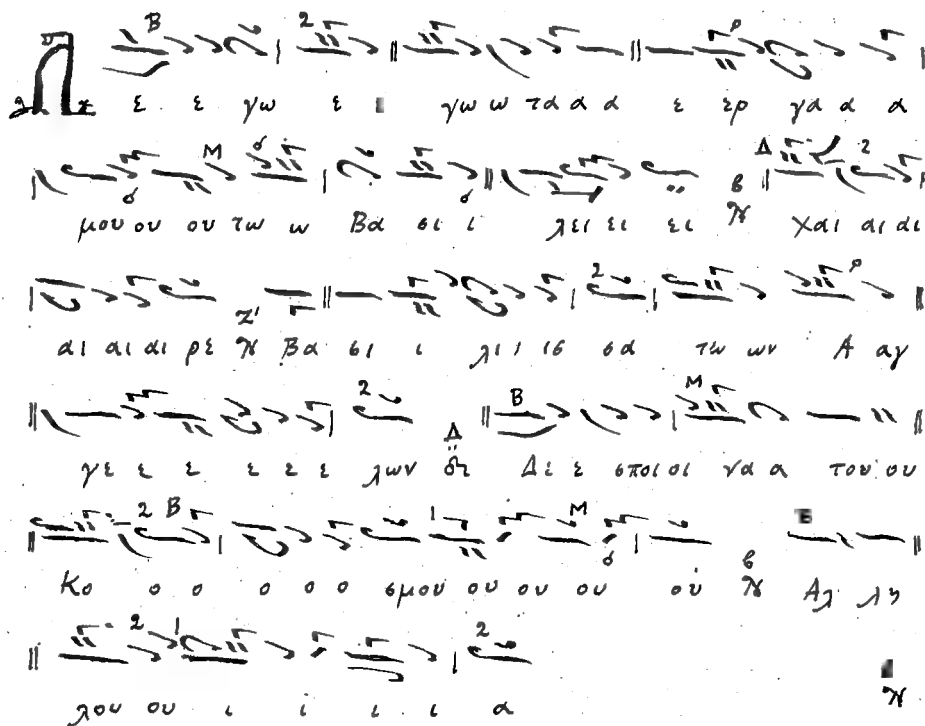 Λ ε ε γω ε ι γω ω τα α α ε ερ γα α α
μου ου ου τω ω Βα σι ι λει ει ει χαι αι αι
αι αι αι ρε Βα σι ι λι ι ισ σα τω ων Α αγ
γε ε ε ε ε ε λων Δε ε σποι οι να α του ου
Κο ο ο ο ο ο σμου ου ου ου ού Αλ λη
λου ου ι ι ι ι α